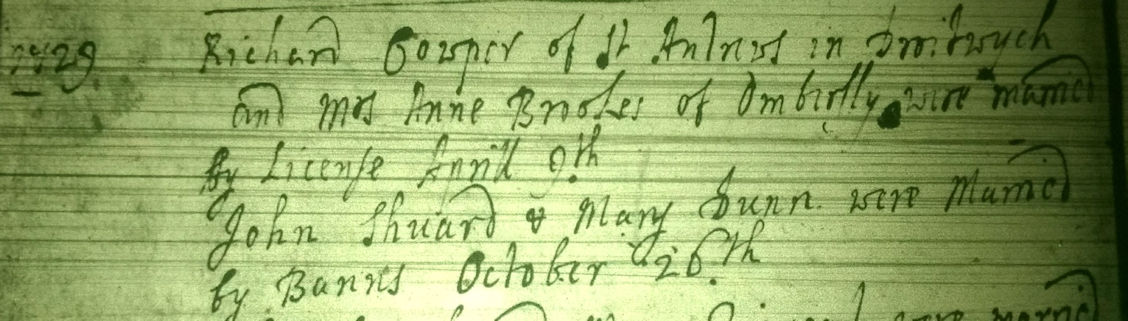 1729 Richard Cowper of St Andrews in Droitwych
and Mrs Anne Brookes of Ombersly were married
by License Aprill 9th
John Shuard & Mary Dunn were Married
by Bannes October 26th
were married